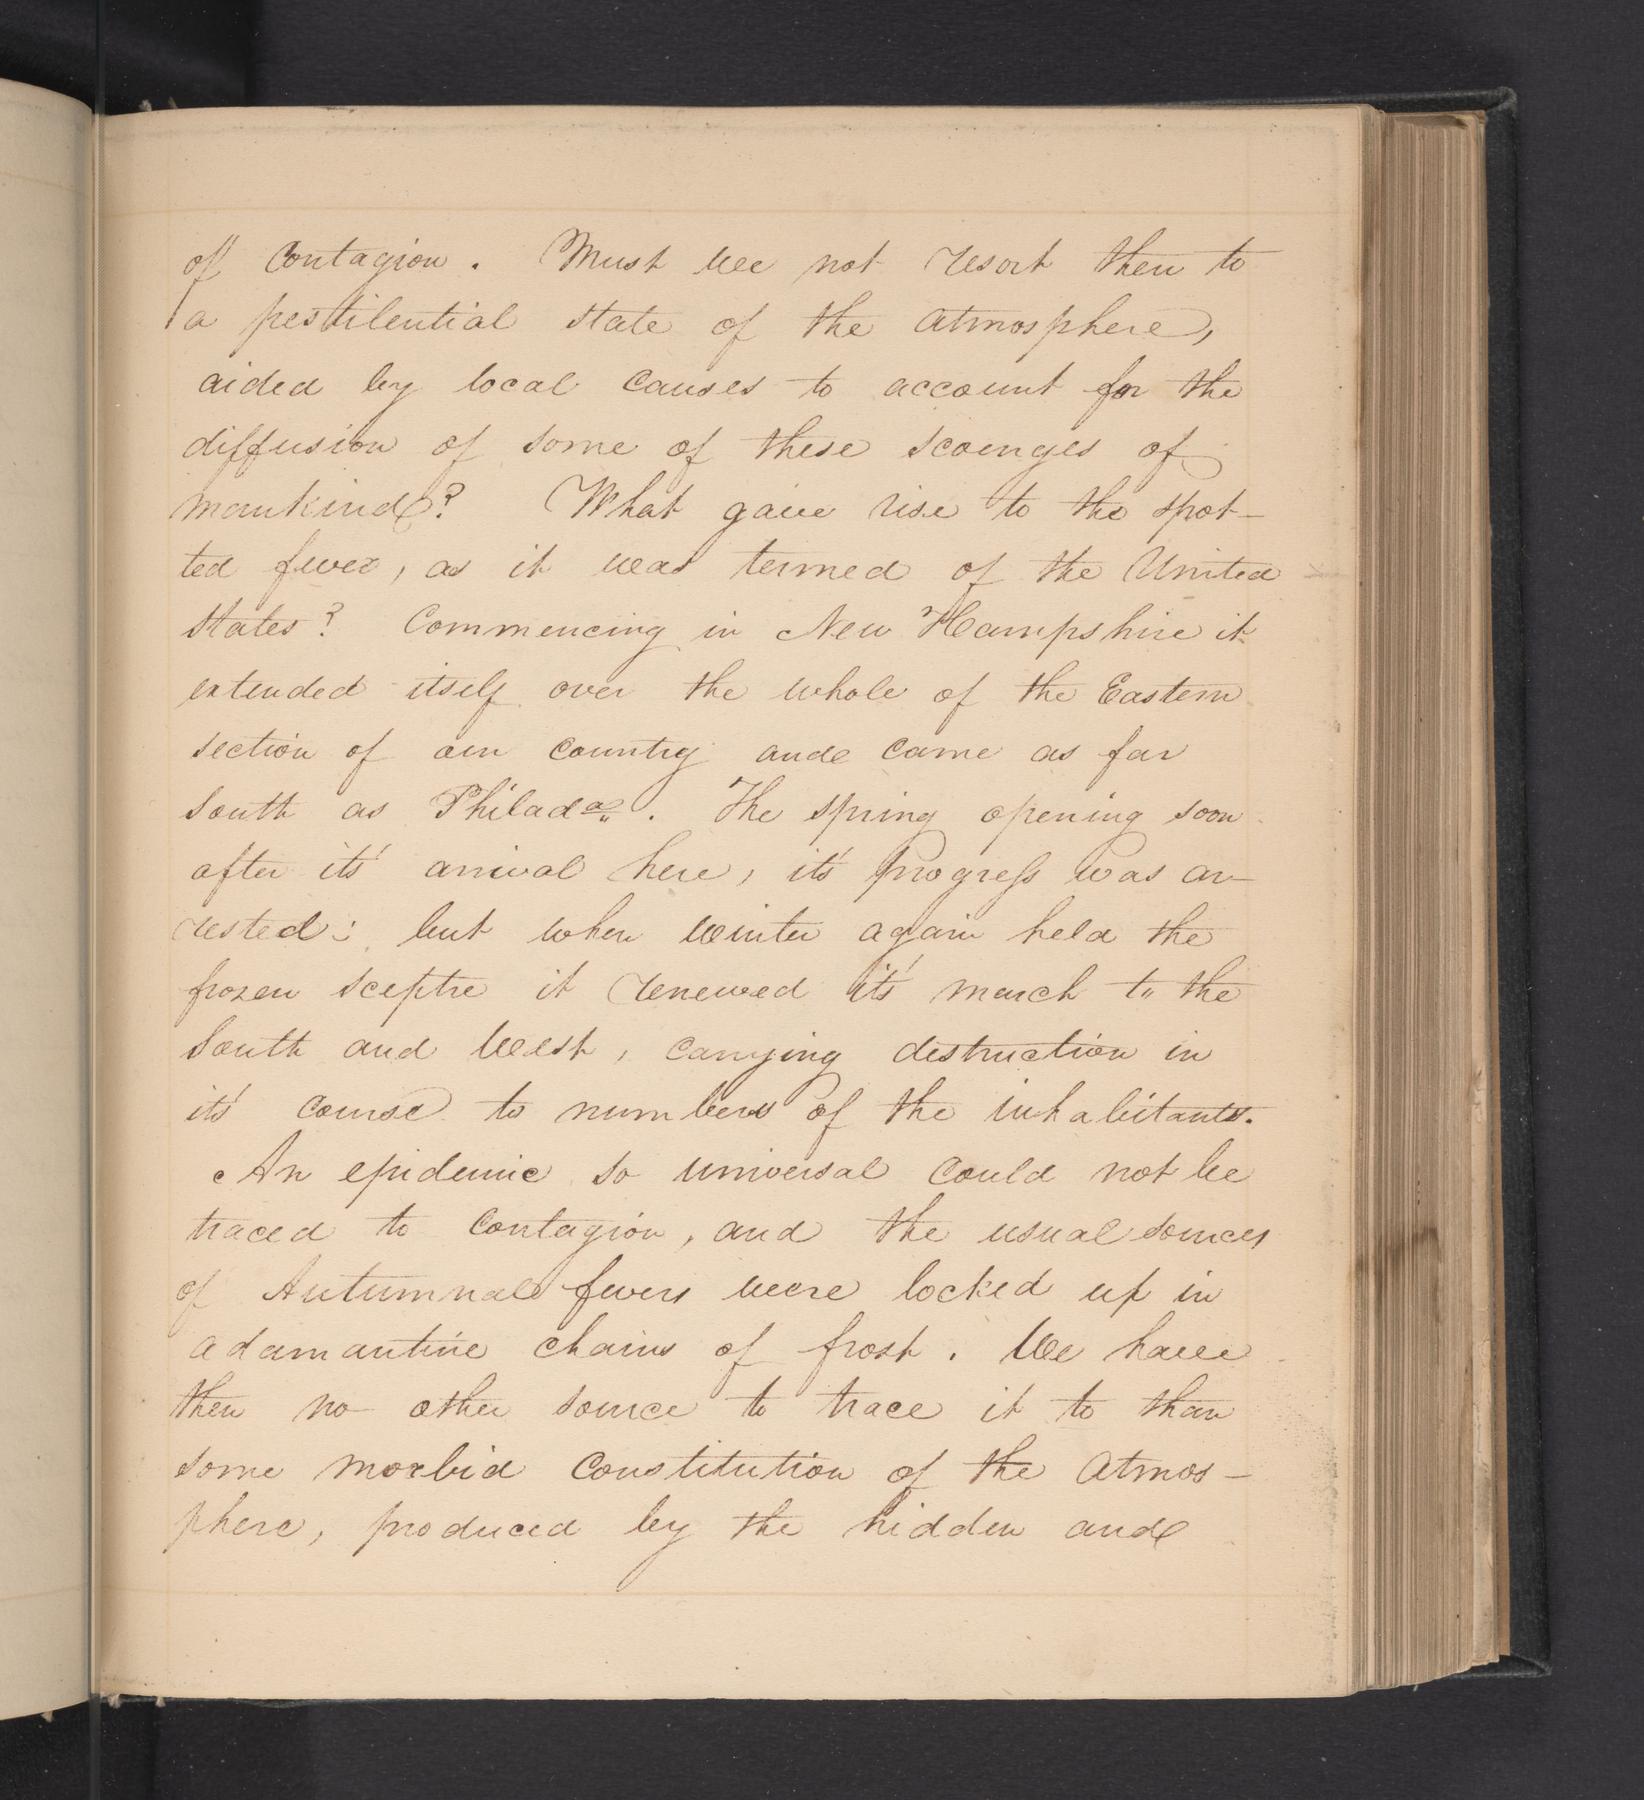 of contagion. Must we not resort then to
a pestilential state of the atmosphere,
aided by local causes to account for the
diffusion of some of these scourges of
mankind? What gave rise to the spot-
ted fever, as it was termed of the United
States? Commencing in New Hampshire it
extended itself over the whole of the Eastern
section of our country and came as far
South as Philada. The spring opening soon
after it's arrival here, it's progress was ar-
rested: but when winter again held the
frozen sceptre it renewed it's march to the
South and West, carrying destruction in
it's course to numbers of the inhabitants.
An epidemic so universal could not be
traced to contagion, and the usual sources
of Autumnal fevers were locked up in
adamantine chains of frost. We have
then no other source to trace it to than
some morbid constitution of the atmos-
phere, produced by the hidden and